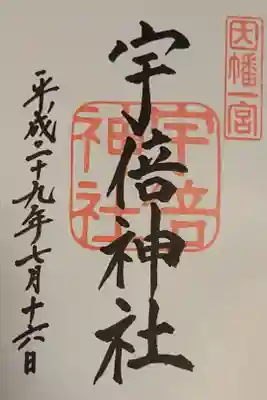 因幡一宮
宇倍神社
宇倍神社
平成二十九年七月十六日